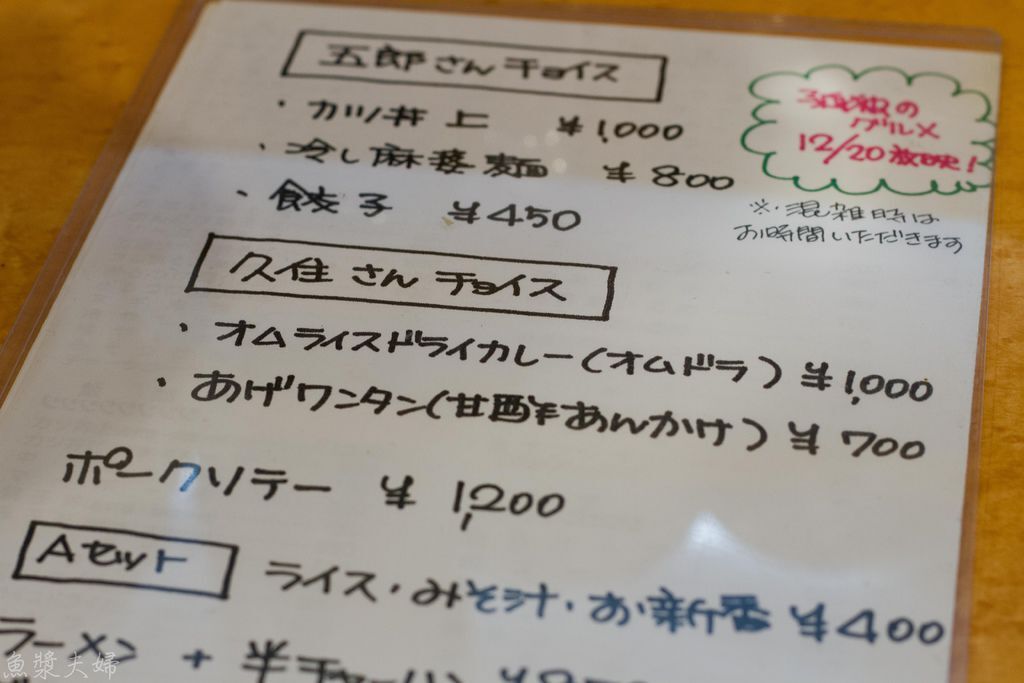 五郎さんチョイス
・カツ丼 上 ¥1,000
・冷し麻婆麺 ¥800
・餃子 ¥450
孤独のグルメ
12/20放映!
※・混雑時は
お時間いただきます
久住さんチョイス
・オムライスドライカレー(オムドラ) ¥1,000
・あげワンタン(甘酢あんかけ) ¥700
ポークソテー ¥1,200
Aセット
ライス・みそ汁・お新香 ¥400
ラーメン + 半チャーハン
魚漿夫婦